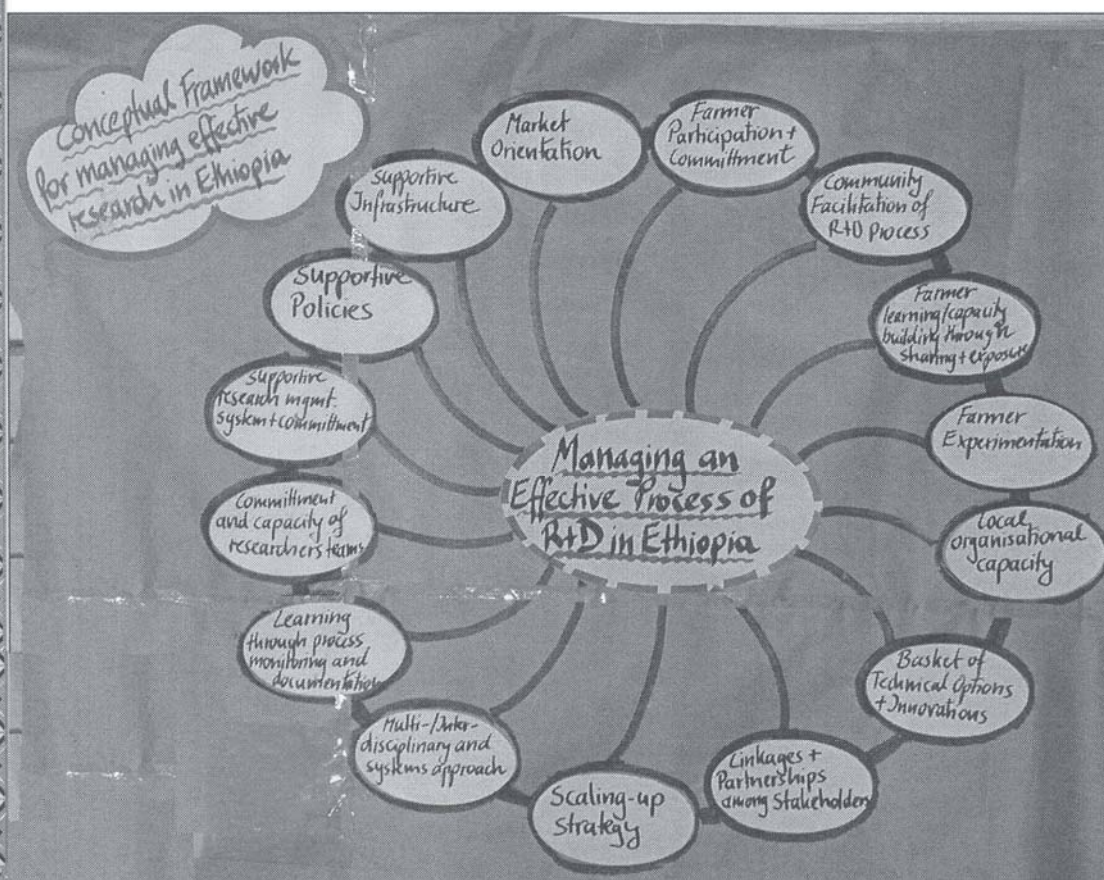 Conceptual Framework
for managing effective
research in Ethiopia
Market
Orientation
Farmer
Participation +
Committment
Community
Facilitation of
R+D Process
Farmer
learning/capacity
building through
sharing + exposure
Farmer
Experimentation
Local
organisational
capacity
Basket of
Technical Options
+ Innovations
Linkages +
Partnerships
among Stakeholders
Scaling-up
Strategy
Multi-/Inter-
disciplinary and
systems approach
Learning
through process
monitoring and
documentation
Committment
and capacity of
researchers teams
Supportive
research mgmt.
system + committment
Supportive
Policies
Supportive
Infrastructure
Managing an
Effective Process of
R+D in Ethiopia